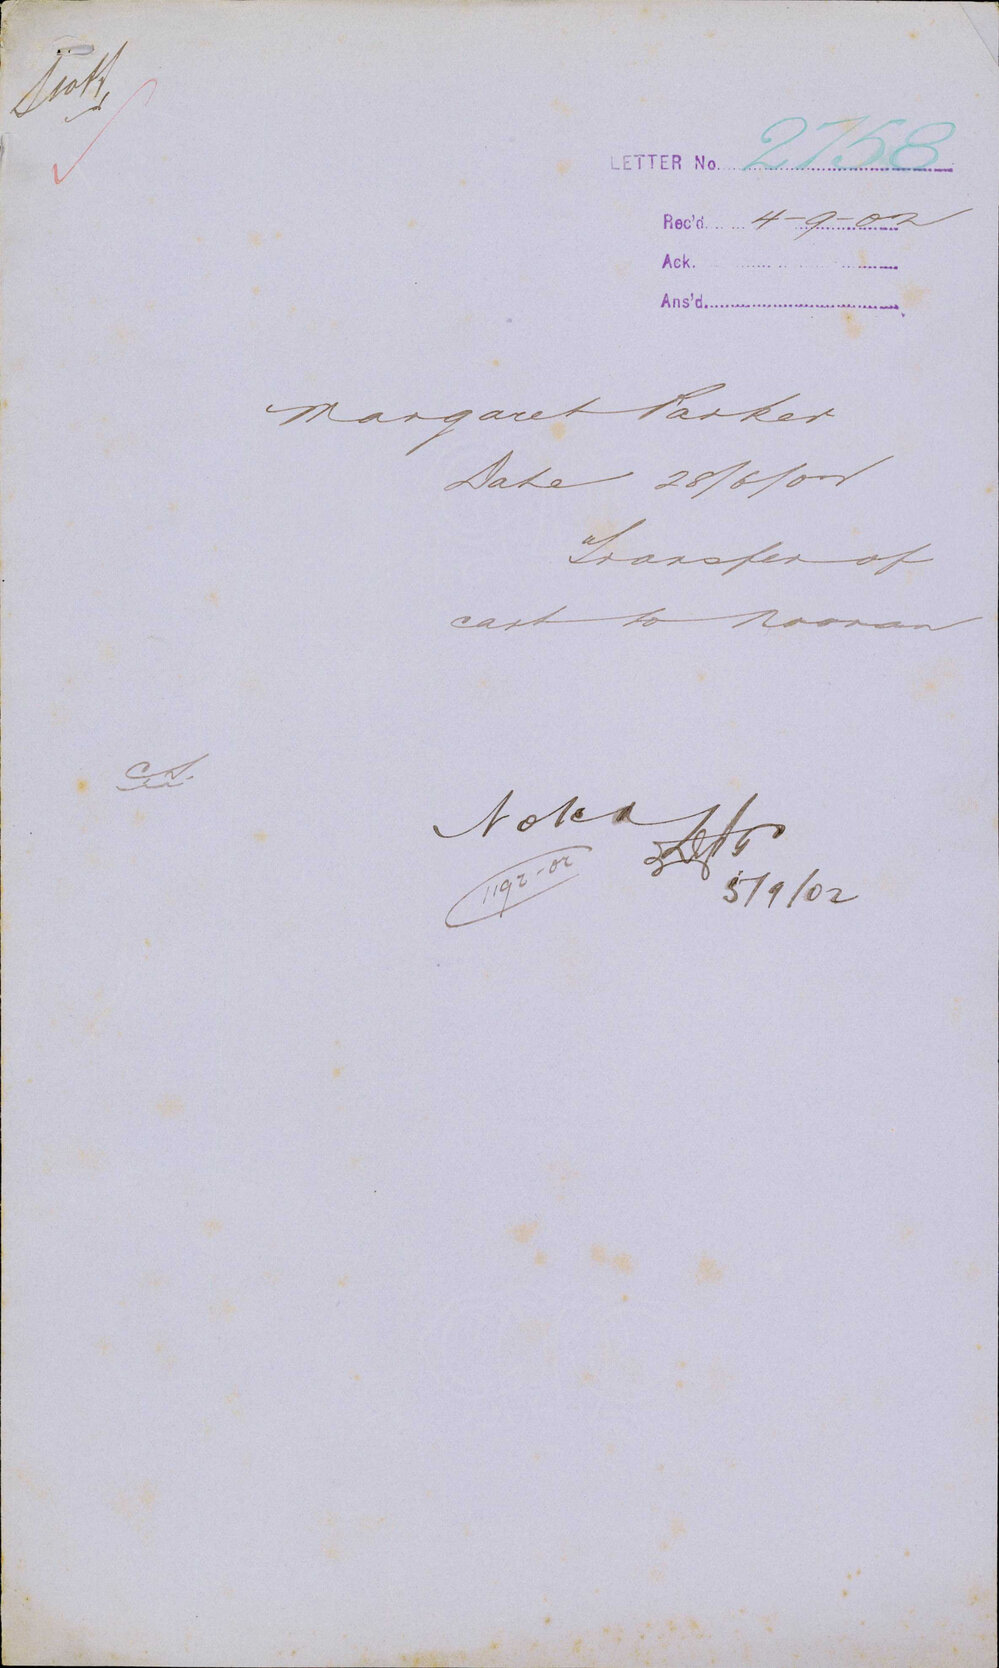 LETTER No. 2758
Rec'd. 4-9-02
Ack.
Ans'd.
Margaret Parker
Date 28/6/02
Transfer of
cart to Noonan
Noted
5/9/02
1192-02